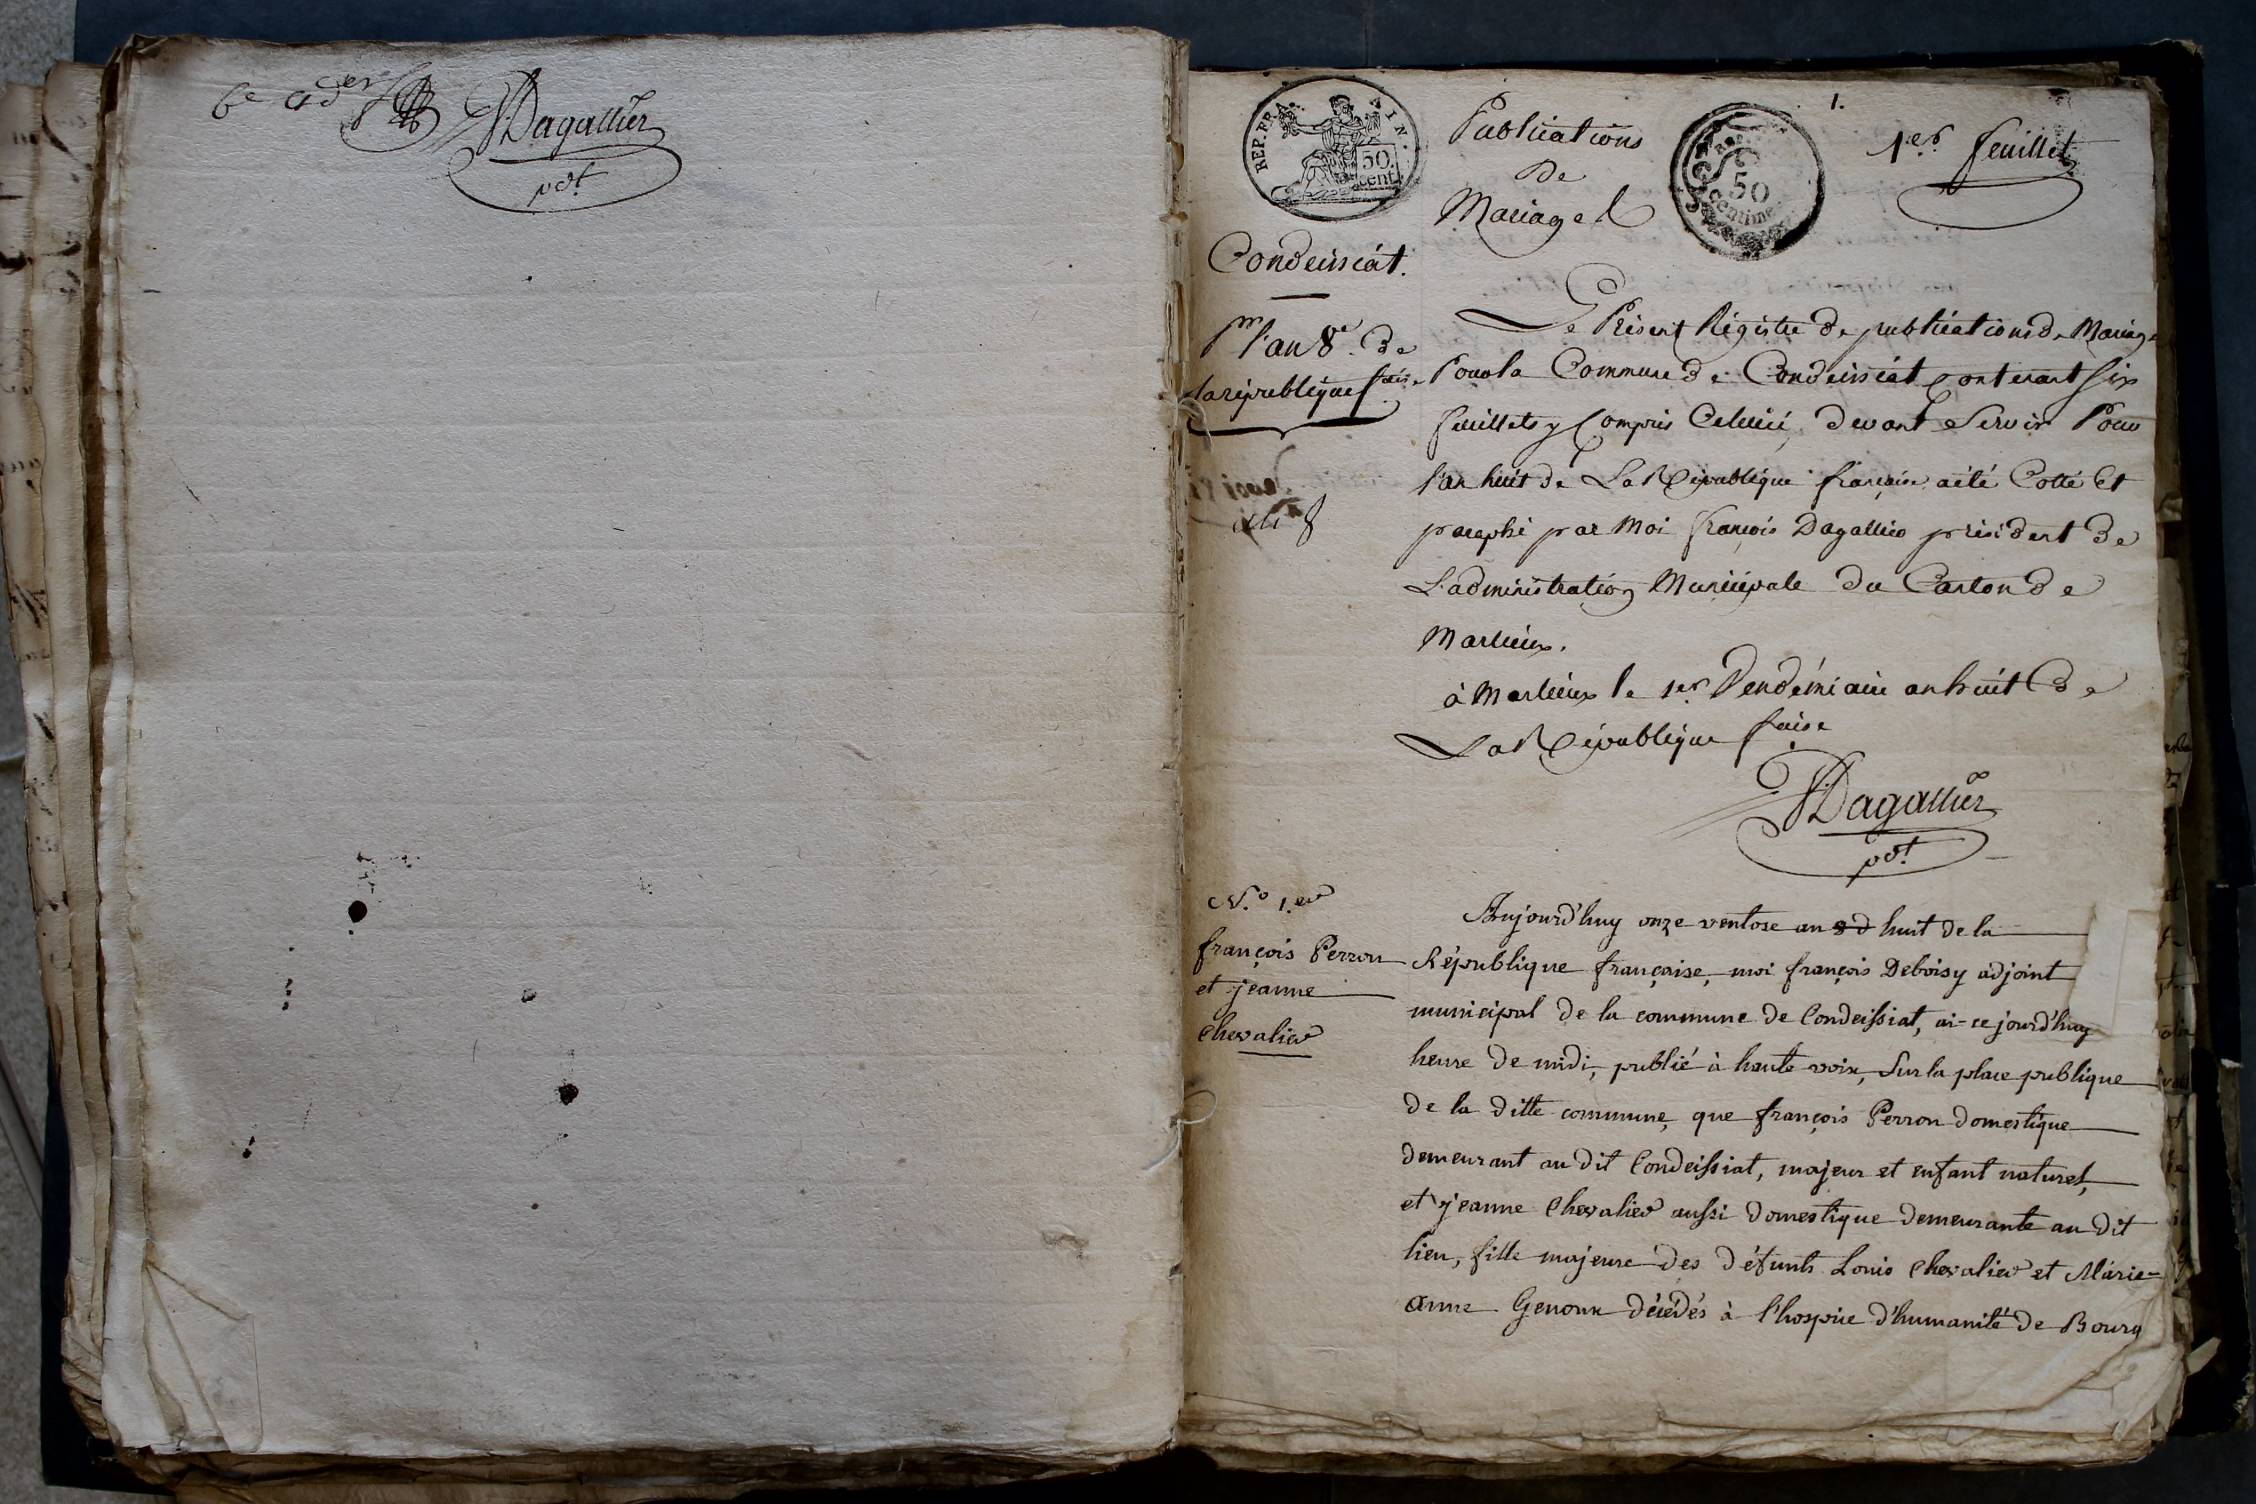 6e et der
Dagallier
pdt
REP. FRA. AIN.
50 cent.
Publications
de
Mariage
50
centime
1.
1er feuillet
Condeissiat.
pr l'an 8e. de
la république fçaise
an 8
Le Présent Régistre de publications de Mariage
Pour la Commune de Condeissiat contenant six
feuillets y Compris Celuici, devant Servir Pour
l'an huit de La République française a été Cotté Et
paraphé par Moi françois Dagallier président de
L'administration Municipale du Canton de
Marlieux.
à Marlieux le 1er Vendémiaire an huit de
La République fçaise
Dagallier
pdt
N.o 1.er
françois Perron
et jeanne
chevalier
Aujourd'huy onze ventose an huit de la
République française, moi françois Deboisy adjoint
municipal de la commune de Condeissiat, ai ce jourd'huy
heure de midi, publié à haute voix, Sur la place publique
de la ditte commune, que françois Perron domestique
demeurant au dit Condeissiat, majeur et enfant naturel,
et jeanne chevalier aussi domestique demeurante au dit
lieu, fille majeure des défunts Louis chevalier et Marie-
anne Genoux décédés à l'hospice d'humanité de Bourg